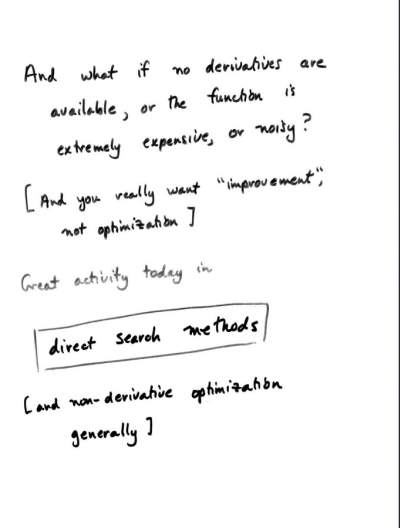 And what if no derivatives are
available, or the function is
extremely expensive, or noisy?
[And you really want "improvement",
not optimization]
Great activity today in
direct search methods
[and non-derivative optimization
generally]